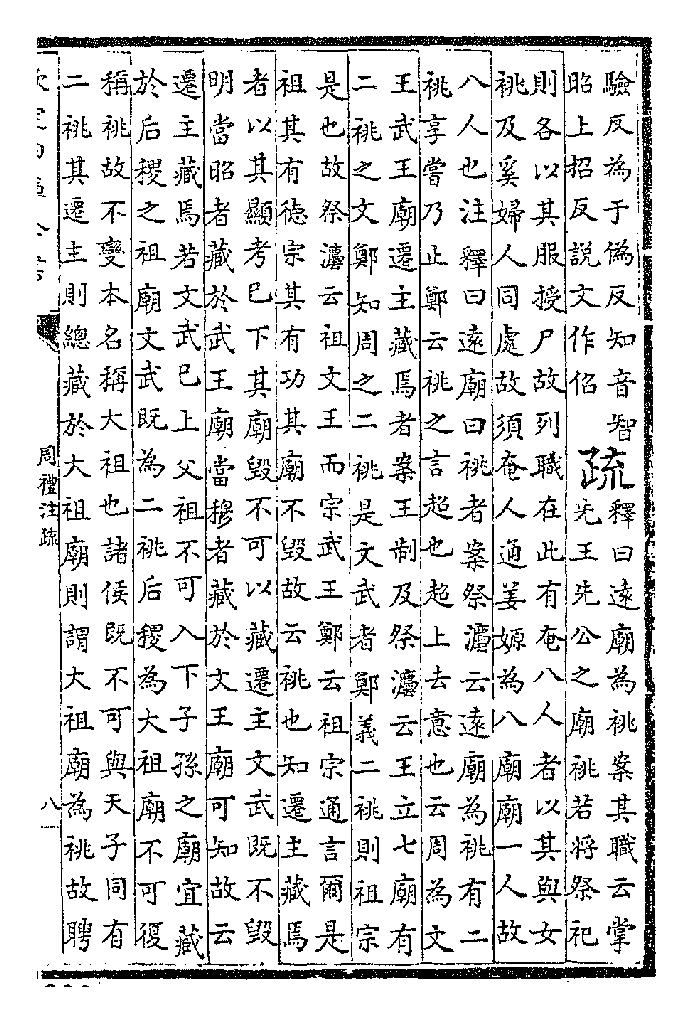 驗反為于偽反知音智
疏
釋曰遠廟為祧案其職云掌
昭上招反說文作佋
先王先公之廟祧若將祭祀
則各以其服授尸故列職在此有奄八人者以其與女
祧及奚婦人同處故須奄人通姜嫄為八廟廟一人故
八人也注釋曰遠廟曰祧者案祭灋云遠廟為祧有二
祧享嘗乃止鄭云祧之言超也超上去意也云周為文
王武王廟遷主藏焉者案王制及祭灋云王立七廟有
二祧之文鄭知周之二祧是文武者鄭義二祧則祖宗
是也故祭灋云祖文王而宗武王鄭云祖宗通言爾是
祖其有徳宗其有功其廟不毀故云祧也知遷主藏焉
者以其顯考已下其廟毀不可以藏遷主文武既不毀
明當昭者藏於武王廟當穆者藏於文王廟可知故云
遷主藏焉若文武已上父祖不可入下子孫之廟宜藏
於后稷之祖廟文武既為二祧后稷為大祖廟不可復
稱祧故不變本名稱大祖也諸侯既不可與天子同有
二祧其遷主則總藏於大祖廟則謂大祖廟為祧故聘
周禮注疏
八